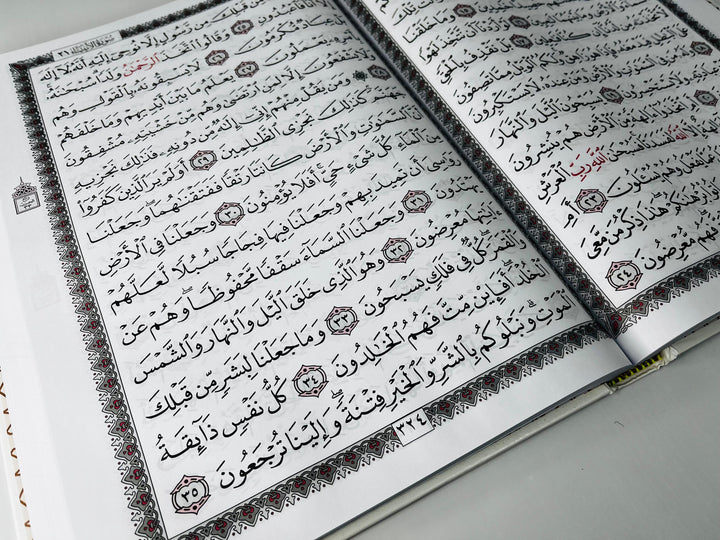 تِلْكَ
وَمَا خَلَقْنَا
لَوْ أَرَدْنَآ أَن نَّتَّخِذَ لَهْوًا
بَلْ نَقْذِفُ بِٱلْحَقِّ
ٱلْوَيْلُ مِمَّا تَصِفُونَ
لَا يَسْتَكْبِرُونَ
يُسَبِّحُونَ ٱلَّيْلَ وَٱلنَّهَارَ
مِّنَ ٱلْأَرْضِ هُمْ يُنشِرُونَ
ٱللَّهُ لَفَسَدَتَا فَسُبْحَٰنَ ٱللَّهِ رَبِّ ٱلْعَرْشِ
يَفْعَلُ وَهُمْ يُسْـَٔلُونَ ٢٣ أَمِ
بُرْهَٰنَكُمْ هَٰذَا ذِكْرُ مَن مَّعِيَ
فَهُم مُّعْرِضُونَ ٢٤
سُورَةُ ٱلْأَنبِيَاءِ ٢١
قَبْلِكَ مِن رَّسُولٍ إِلَّا نُوحِىٓ إِلَيْهِ أَنَّهُۥ لَآ إِلَٰهَ
أَنَا۠ فَٱعْبُدُونِ ٢٥ وَقَالُوا۟ ٱتَّخَذَ ٱلرَّحْمَٰنُ وَلَدًا سُبْحَٰنَهُۥ
عِبَادٌ مُّكْرَمُونَ ٢٦ لَا يَسْبِقُونَهُۥ بِٱلْقَوْلِ وَهُم
يَعْمَلُونَ ٢٧ يَعْلَمُ مَا بَيْنَ أَيْدِيهِمْ وَمَا خَلْفَهُمْ
يَشْفَعُونَ إِلَّا لِمَنِ ٱرْتَضَىٰ وَهُم مِّنْ خَشْيَتِهِۦ مُشْفِقُونَ
٢٨ وَمَن يَقُلْ مِنْهُمْ إِنِّىٓ إِلَٰهٌ مِّن دُونِهِۦ فَذَٰلِكَ نَجْزِيهِ
جَهَنَّمَ كَذَٰلِكَ نَجْزِى ٱلظَّٰلِمِينَ ٢٩ أَوَلَمْ يَرَ ٱلَّذِينَ كَفَرُوٓا۟
أَنَّ ٱلسَّمَٰوَٰتِ وَٱلْأَرْضَ كَانَتَا رَتْقًا فَفَتَقْنَٰهُمَا وَجَعَلْنَا
مِنَ ٱلْمَآءِ كُلَّ شَىْءٍ حَىٍّ أَفَلَا يُؤْمِنُونَ ٣٠ وَجَعَلْنَا فِى ٱلْأَرْضِ
رَوَٰسِىَ أَن تَمِيدَ بِهِمْ وَجَعَلْنَا فِيهَا فِجَاجًا سُبُلًا لَّعَلَّهُمْ
يَهْتَدُونَ ٣١ وَجَعَلْنَا ٱلسَّمَآءَ سَقْفًا مَّحْفُوظًا وَهُمْ عَنْ
ءَايَٰتِهَا مُعْرِضُونَ ٣٢ وَهُوَ ٱلَّذِى خَلَقَ ٱلَّيْلَ وَٱلنَّهَارَ وَٱلشَّمْسَ
وَٱلْقَمَرَ كُلٌّ فِى فَلَكٍ يَسْبَحُونَ ٣٣ وَمَا جَعَلْنَا لِبَشَرٍ مِّن قَبْلِكَ
ٱلْخُلْدَ أَفَإِي۟ن مِّتَّ فَهُمُ ٱلْخَٰلِدُونَ ٣٤ كُلُّ نَفْسٍ ذَآئِقَةُ
ٱلْمَوْتِ وَنَبْلُوكُم بِٱلشَّرِّ وَٱلْخَيْرِ فِتْنَةً وَإِلَيْنَا تُرْجَعُونَ ٣٥
٣٢٤